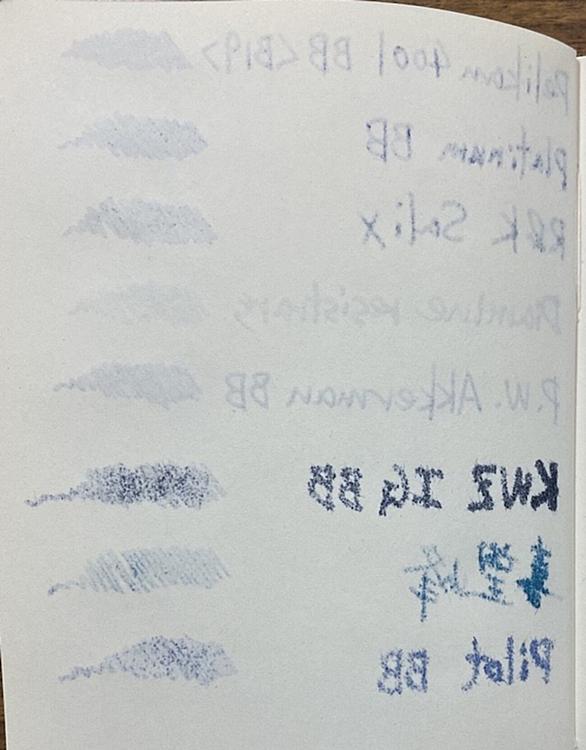 Pelikan 4001 BB <B19>
Platinum BB
R&K Salix
Diamine registrars
P.W. Akkerman BB
KWZ IG BB
未望峰
Pilot BB